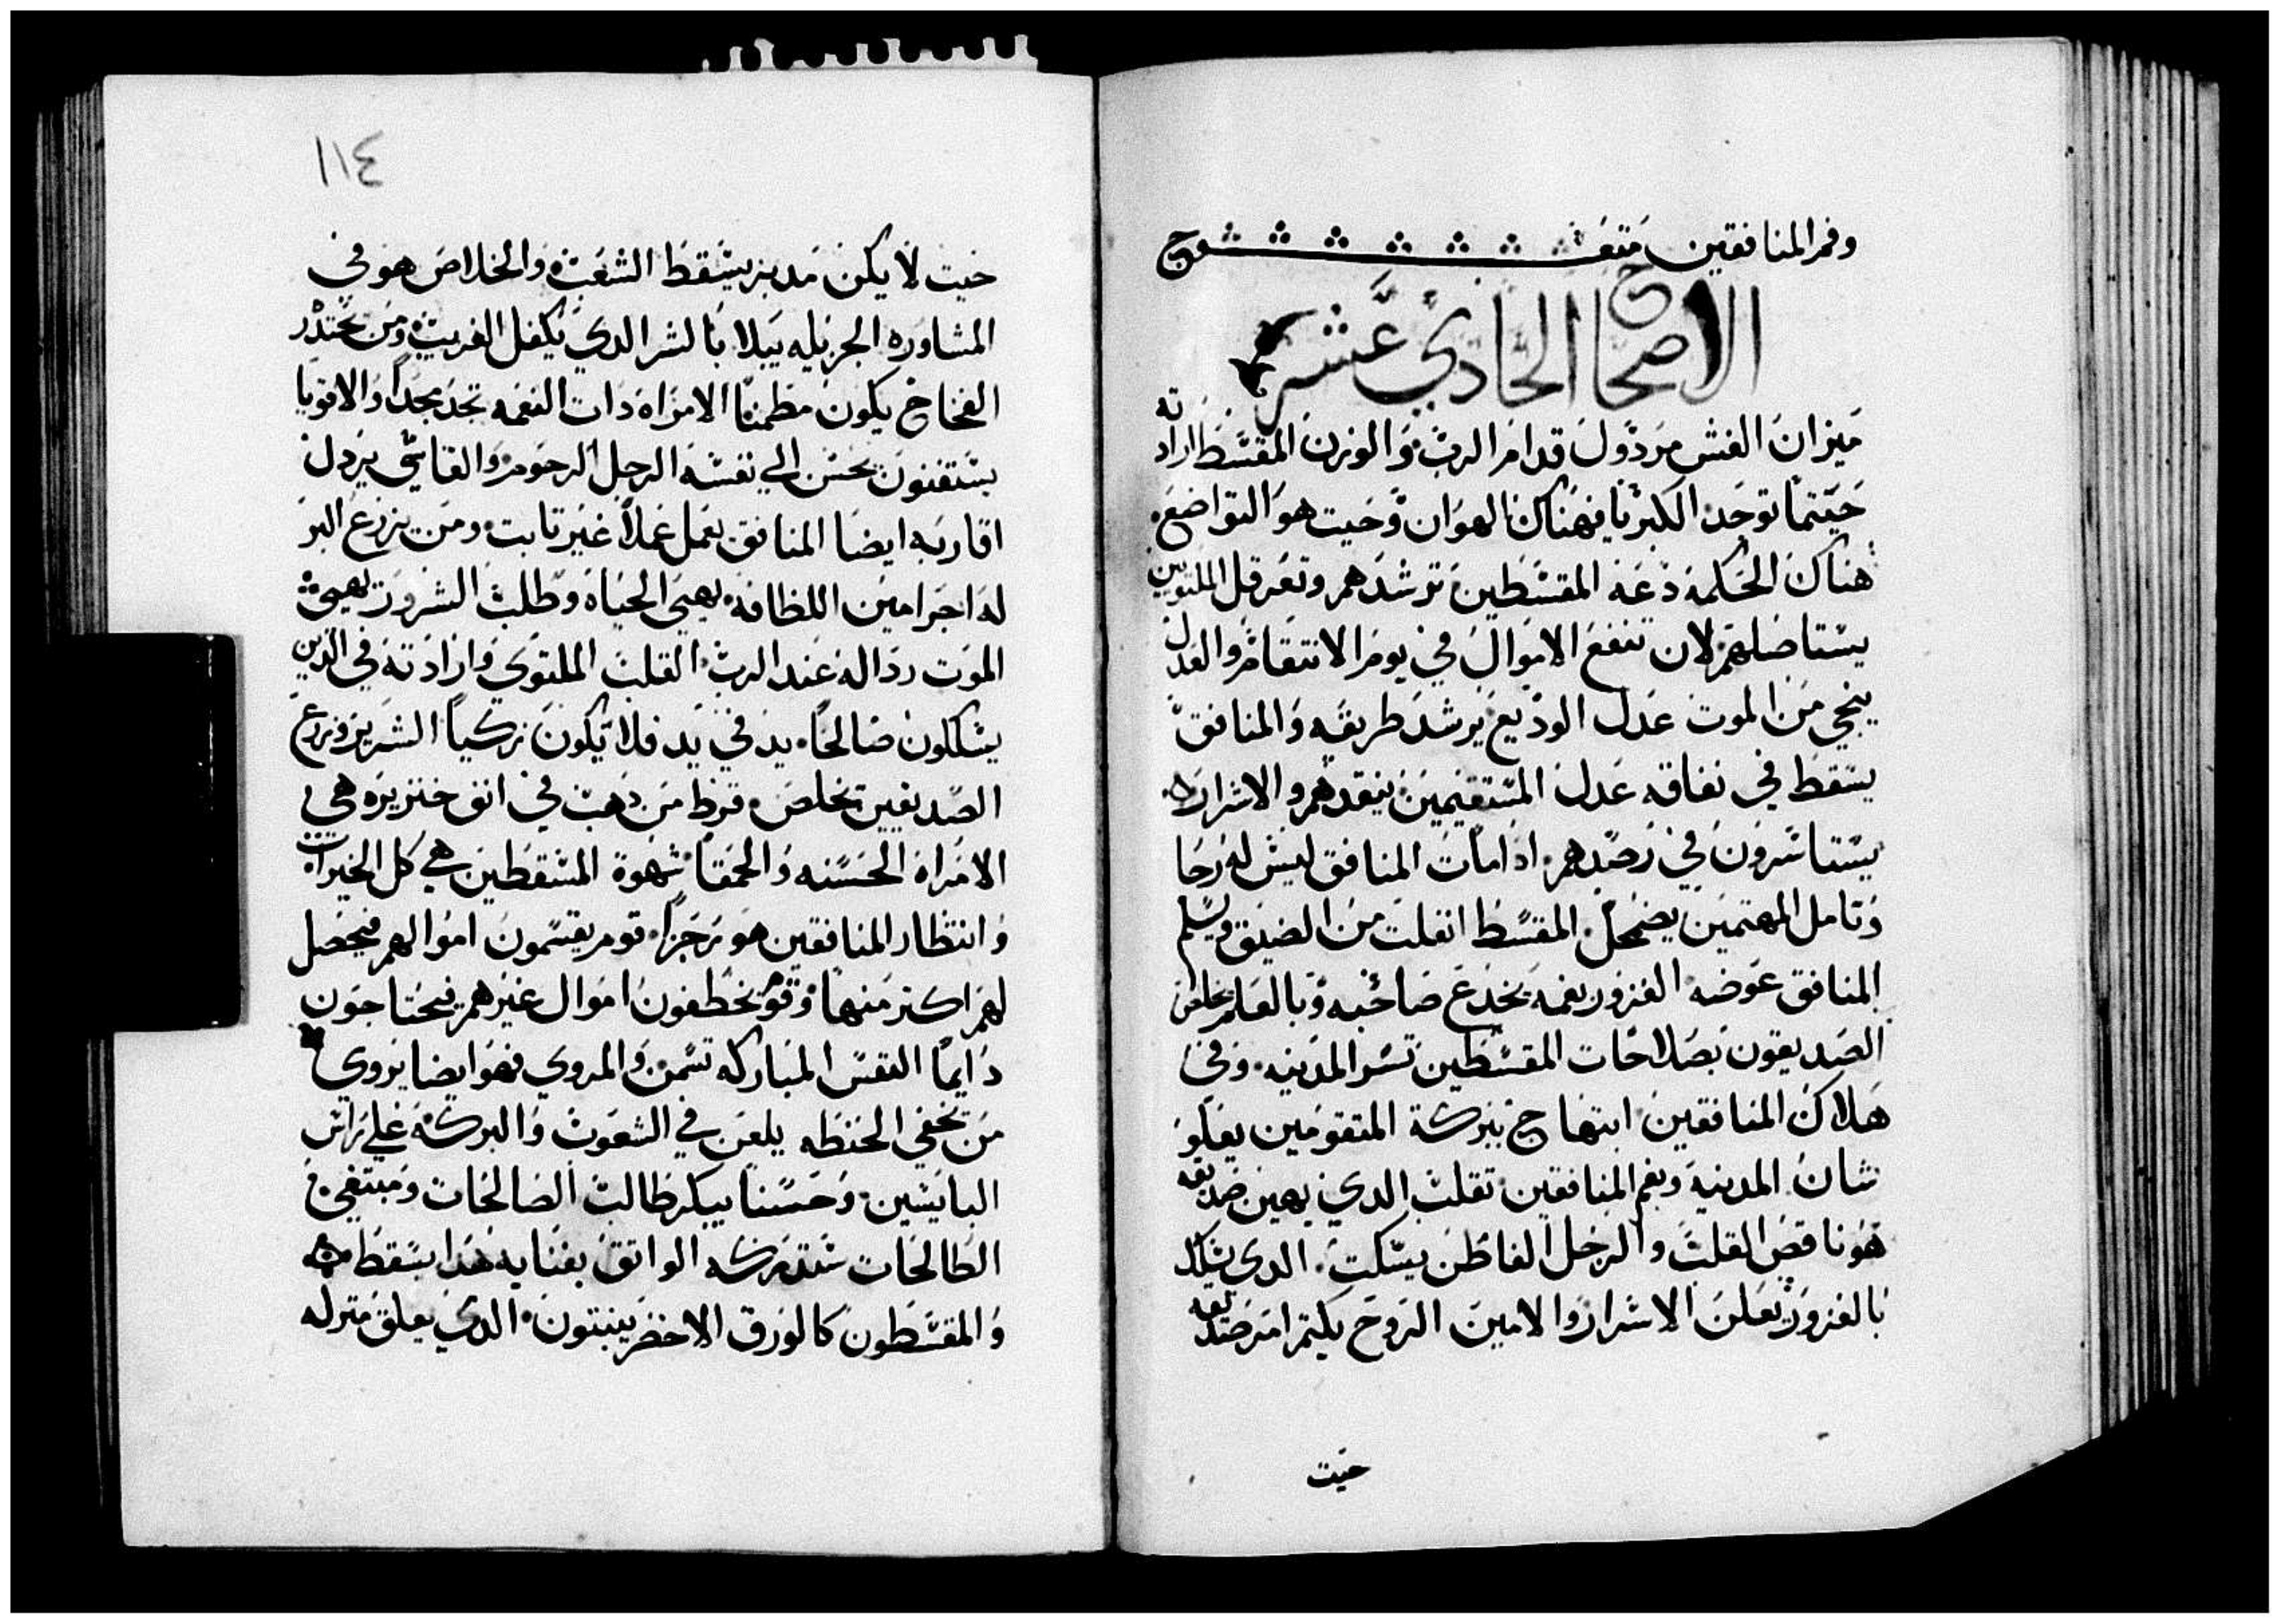 وفم المنافقين متعـــــــــوج
الاصحاح الحادي عشر
ميزان الغش مردول قدام الرب والوزن المقسط ارادته
حيتما توجد الكبريا فهناك الهوان وحيت هو التواضع
هناك الحكمه دعة المقسطين ترشدهم وتعرقل الملتويين
يستاصلهم لان تنفع الاموال في يوم الانتقام والعدل
ينجي من الموت عدل الوديع يرشد طريقه والمنافق
يسقط في نفاقه عدل المستقيمين ينقدهم والاشرار
يستاسرون في رصدهم ادا مات المنافق ليس له رجا
وتامل المهتمين يضمحل المقسط انفلت من الضيق ويسلم
المنافق عوضه الغرور بفمه يخدع صاحبه وبالعلم يخلص
الصديقون بصلاحات المقسطين تسر المدينه وفي
هلاك المنافقين ابتهاج ببركة المتقومين يعلو
شان المدينه وبفم المنافقين تقلب الدي يهين صديقه
هو ناقص القلب والرجل الفاطن يسكت الدي يسلك
بالغرور يعلن الاسرار والامين الروح يكتم امر صديقه
حيت
١١٤
حيت لا يكن مدبر يسقط الشعب والخلاص هو في
المشاوره الجزيله يبلا بالشر الدي يكفل الغريب ومن يحتدر
الفخاخ يكون مطمنا الامراة دات النعمه تجد مجدا والاقويا
يستغنون يحسن الي نفسه الرجل الرحوم والقاسي يردل
اقاربه ايضا المنافق يعمل عملا غير تابت ومن يزرع البر
له اجر امين اللطافه يهيي الحياه وطلب الشرور يهيي
الموت رداله عند الرب القلب الملتوي وارادته في الدين
يسلكون صالحا يد في يد فلا يكون زكيا الشرير وزرع
الصديقين يخلص قرط من دهب في انف خنزيره هي
الامراة الحسنه والحمقا شهوة المسقطين هي كل الخيرات
وانتظار المنافقين هو رجزا قوم يقسمون اموالهم فيحصل
لهم اكتر منها وقوم يخطفون اموال غيرهم فيحتاجون
دايما النفس المباركه تسمن والمروي فهو ايضا يروي
من يخفي الحنطه يلعن في الشعوب والبركه علي راس
البايعين وحسنا يبكر طالب الصالحات ومبتغي
الطالحات ستدركه الواتق بغنايه هدا يسقط
والمقسطون كالورق الاخضر ينبتون الدي يعلق منزله